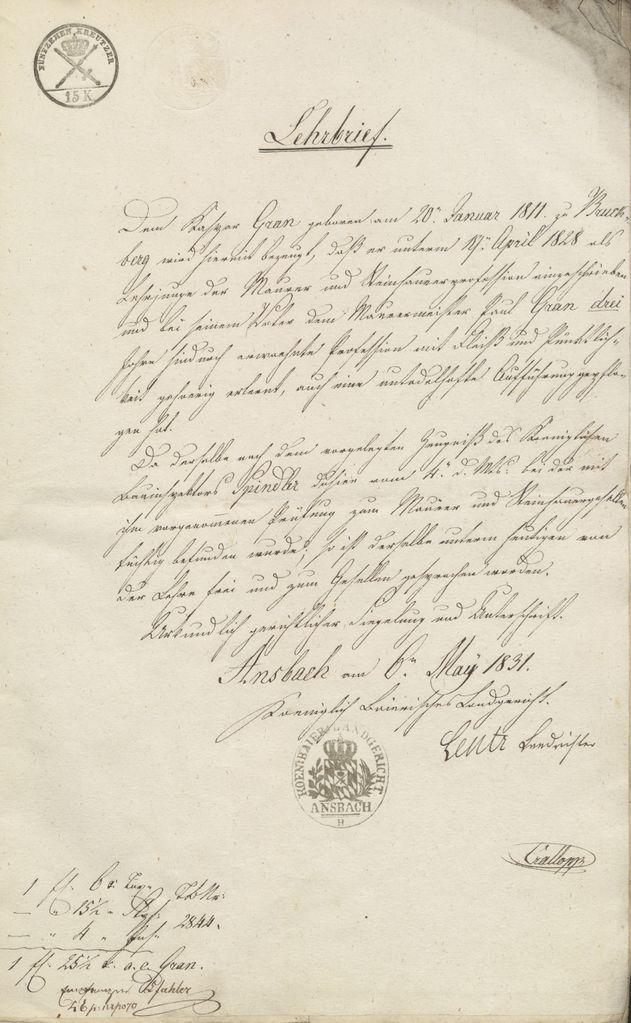 FÜNFZEHEN KREUTZER
15 K
Lehrbrief.
Dem Kaspar Gran geboren am 20n. Januar 1811. zu Bruck-
berg wird hiermit bezeugt, daß er unterm 19n. April 1828 als
Lehrjunge der Maurer und Steinhauerprofession eingeschrieben
und bei seinem Vater dem Maurermeister Paul Gran drei
Jahre hindurch erwaehnte Profession mit Fleiß und Pünktlich-
keit gehoerig erlernt, auch eine untadelhafte Aufführung gepflo-
gen hat.
Da derselbe nach dem vorgelegten Zeugniß des Koeniglichen
Bauinspektors Spindler dahier vom 4n. d. Mts. bei der mit
ihm vorgenommenen Prüfung zum Maurer und Steinhauergesellen
tüchtig befunden wurde; so ist derselbe unterm heutigen von
der Lehre frei und zum Gesellen gesprochen worden.
Urkundlich gerichtlicher Siegelung und Unterschrift.
Ansbach am 6n. May 1831.
Koeniglich Baierisches Landgericht.
Lentz Landrichter
KOEN: BAIER: LANDGERICHT
ANSBACH
H
1 fl. 6 x Tax.
— " 15½ "
— " 4 "
2844.
1 fl. 25½ x. a. e. Gran.